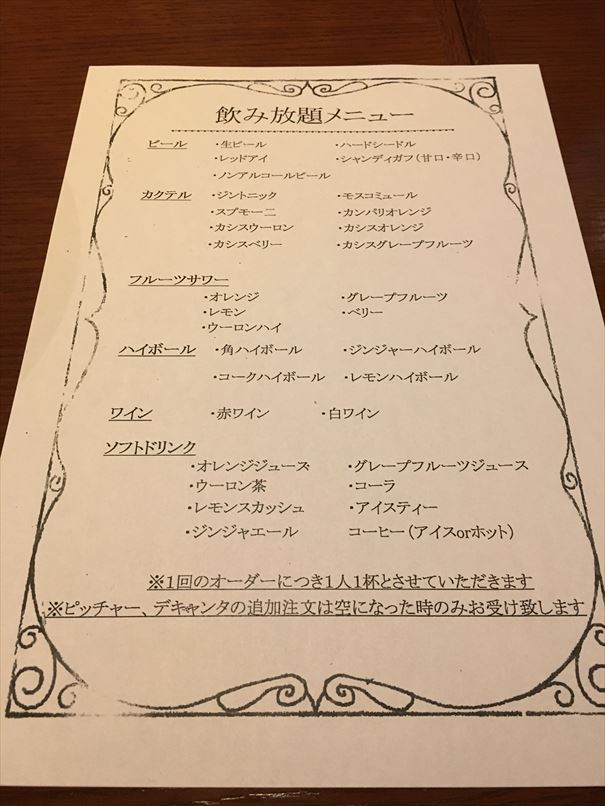 飲み放題メニュー
ビール ・生ビール ・ハードシードル
・レッドアイ ・シャンディガフ(甘口・辛口)
・ノンアルコールビール
カクテル ・ジントニック ・モスコミュール
・スプモーニ ・カンパリオレンジ
・カシスウーロン ・カシスオレンジ
・カシスベリー ・カシスグレープフルーツ
フルーツサワー
・オレンジ ・グレープフルーツ
・レモン ・ベリー
・ウーロンハイ
ハイボール ・角ハイボール ・ジンジャーハイボール
・コークハイボール ・レモンハイボール
ワイン ・赤ワイン ・白ワイン
ソフトドリンク
・オレンジジュース ・グレープフルーツジュース
・ウーロン茶 ・コーラ
・レモンスカッシュ ・アイスティー
・ジンジャエール コーヒー(アイスorホット)
※1回のオーダーにつき1人1杯とさせていただきます
※ピッチャー、デキャンタの追加注文は空になった時のみお受け致します